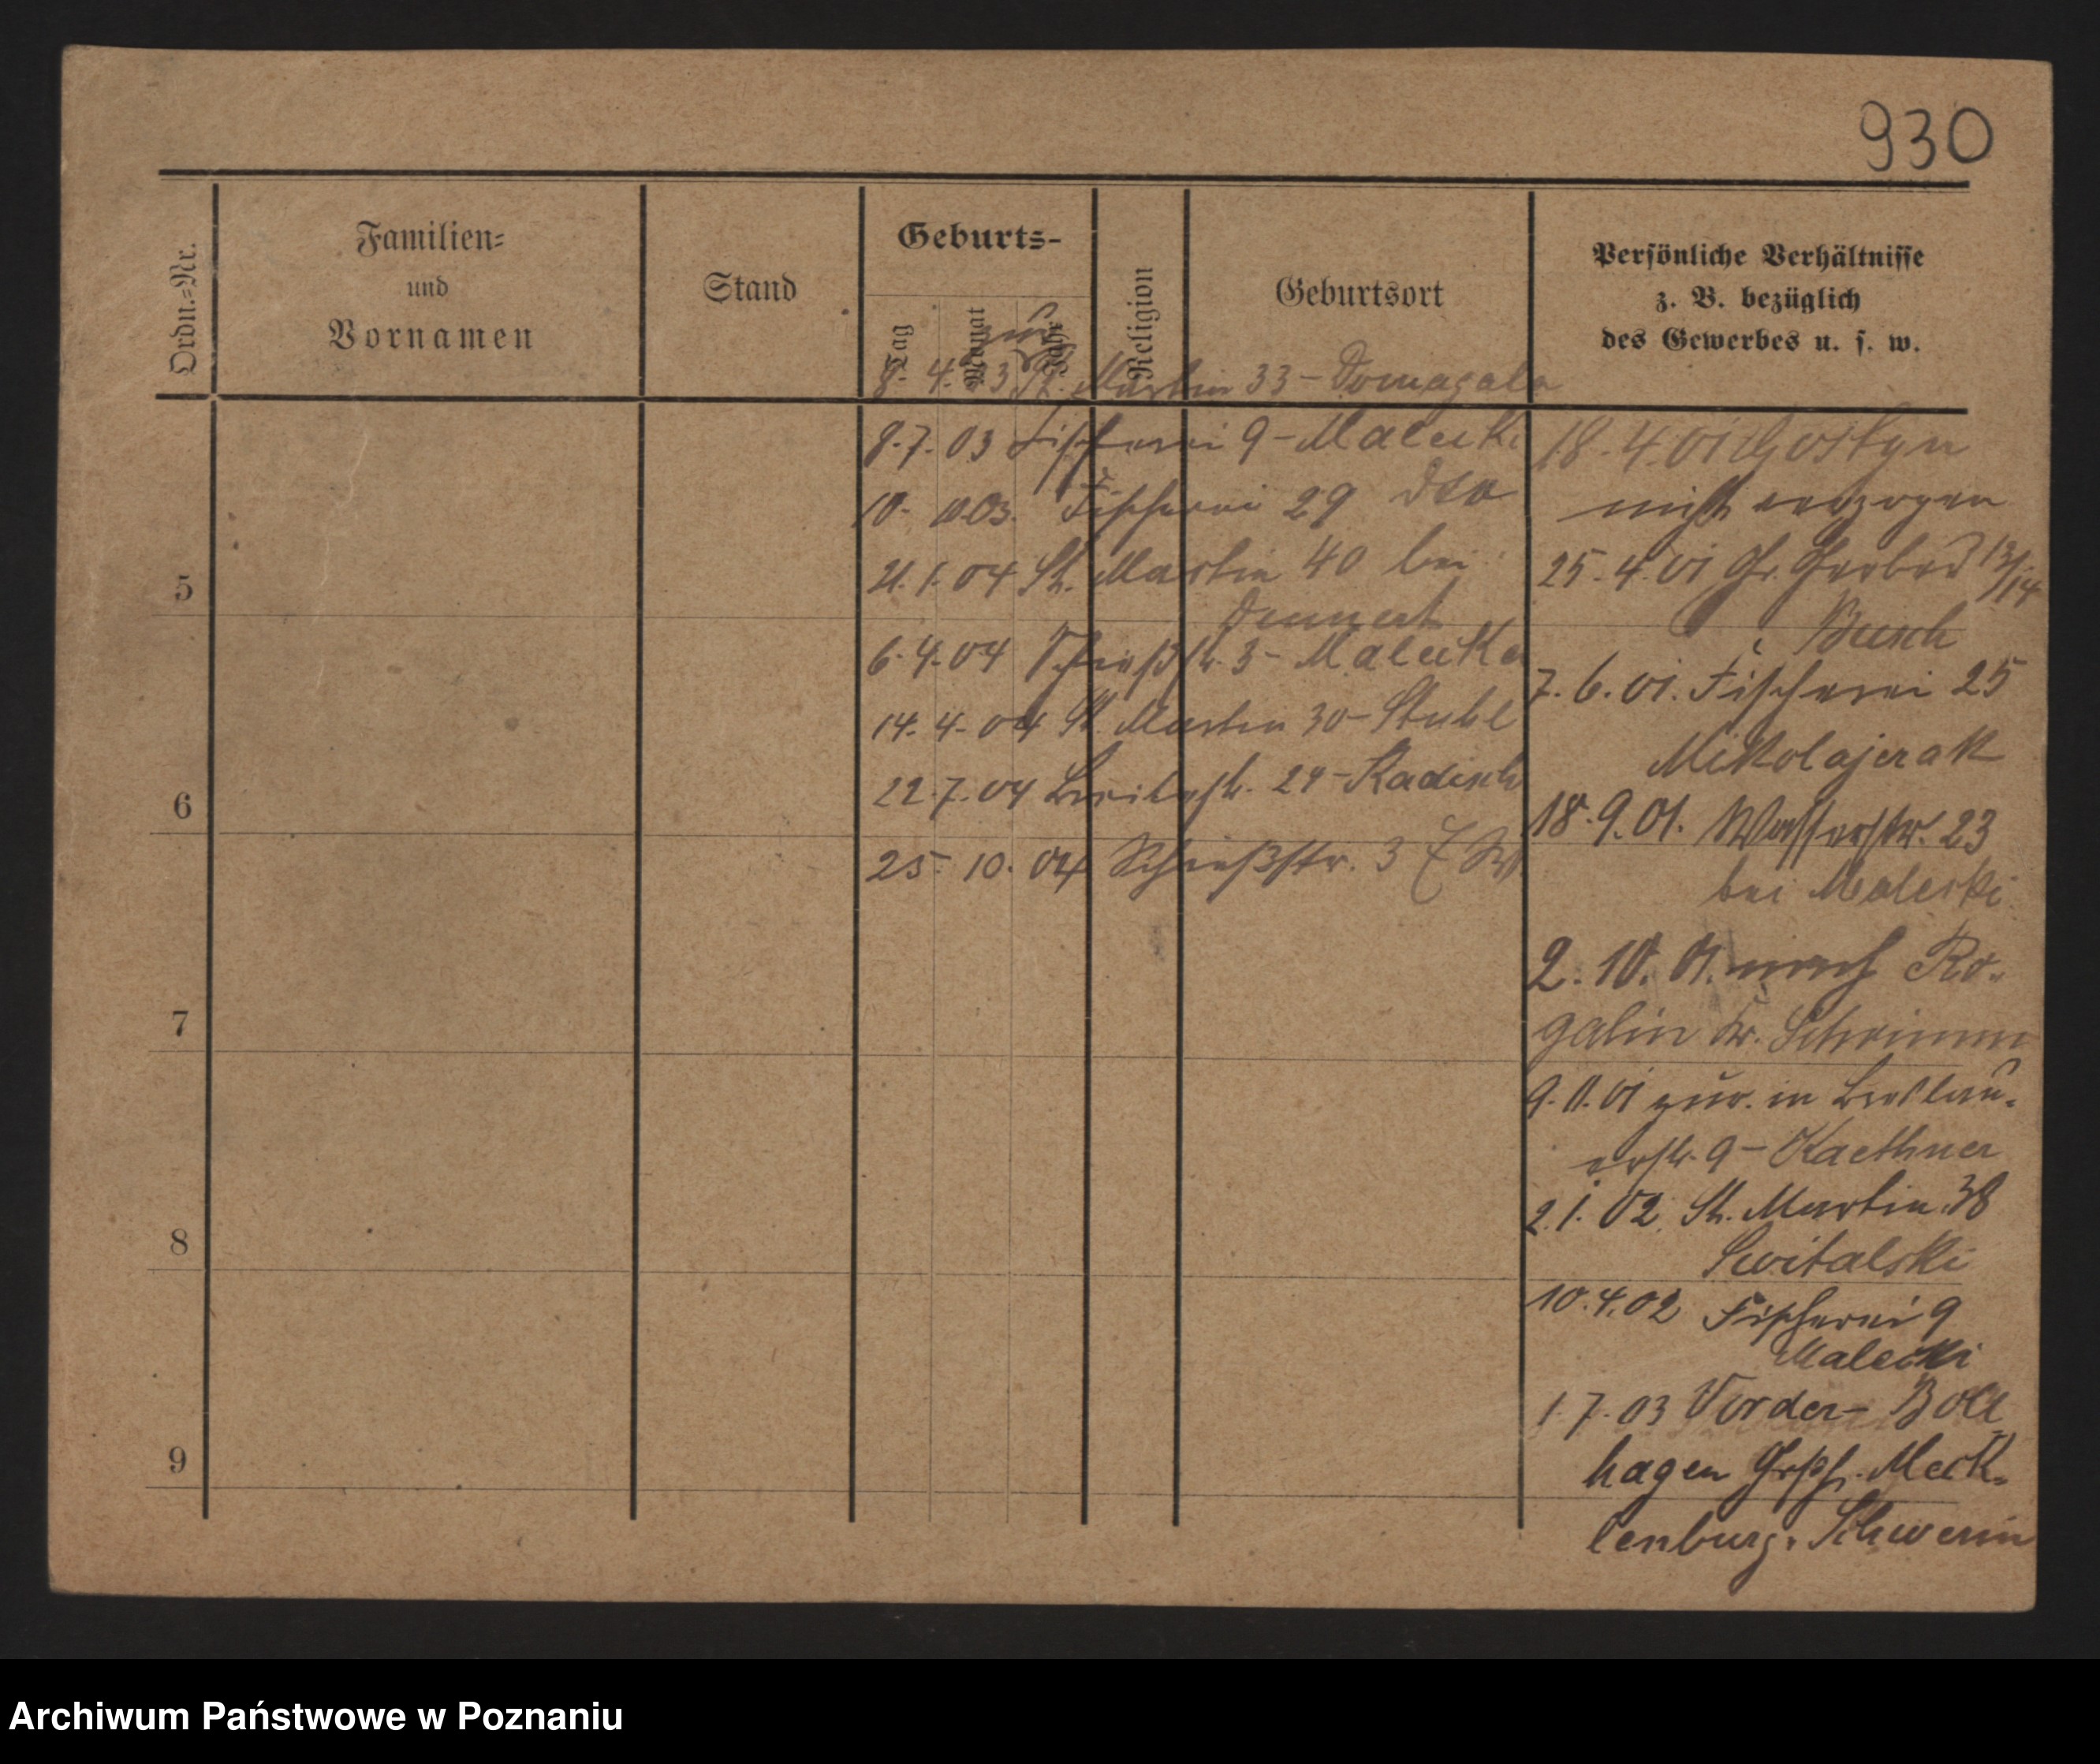 930
Ordn.=Nr.
Familien=
und
Vornamen
Stand
Geburts-
Tag
Monat
Jahr
Religion
Geburtsort
Persönliche Verhältnisse
z. B. bezüglich
des Gewerbes u. s. w.
zur
8. 4. 03 St. Martin 33 - Domagala
8. 7. 03 Fischerei 9 - Malecki
10. 10. 03. Fischerei 29 dto
21. 1. 04 St. Martin 40 bei
6. 4. 04 Schießstr. 3 - Malecka
14. 4. 04 St. Martin 30 - Stuhl
22. 7. 04 Breitestr. 24 - Radisch
25. 10. 04 Schießstr. 3
18. 4. 01 Gostyn
nicht verzogen
25. 4. 01 Gr. Gerber 13/14
Busch
7. 6. 01. Fischerei 25
Mikolajczak
18. 9. 01. Wasserstr. 23
bei Malecki
2. 10. 01. nach Ro-
galin Kr. Schrimm
9. 11. 01 zur. in Breslau-
erstr. 9 - Kaethner
2. 1. 02. St. Martin 38
Switalski
10. 4. 02 Fischerei 9
Malecki
1. 7. 03 Vorder- Boll
hagen Meck-
lenburg. Schwerin
5
6
7
8
9
Archiwum Państwowe w Poznaniu